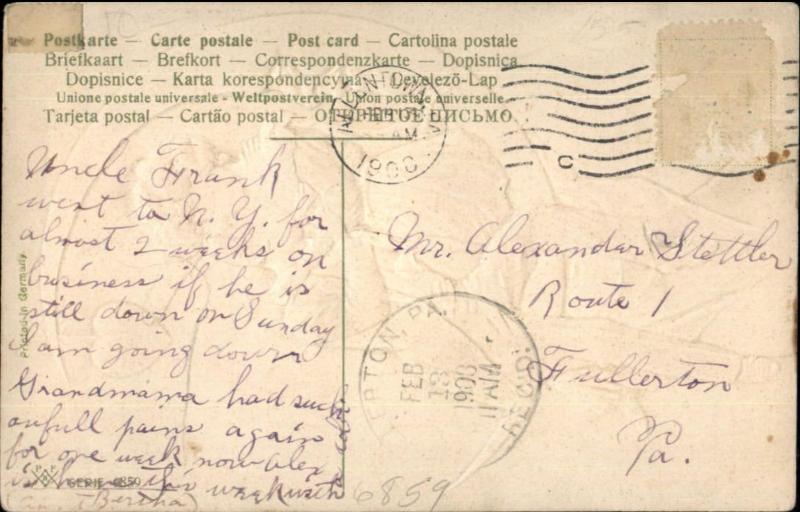 Postkarte — Carte postale — Post card — Cartolina postale
Briefkaart — Brefkort — Correspondenzkarte — Dopisnica
Dopisnice — Karta korespondencyjna — Levelező-Lap
Unione postale universale - Weltpostverein - Union postale universelle
Tarjeta postal — Cartão postal — ОТКРЫТОЕ ПИСЬМО
1900
C
Uncle Frank
went to N. Y. for
almost 2 weeks on
business if he is
still down on Sunday
I am going down
Grandmama had such
awfull pains again
for one week now Alex
is here this week with
Bertha)
Printed in Germany
Mr. Alexander Stettler
Route 1
Fullerton
Pa.
ERTON, PA.
FEB
13
11 AM
REC'D.
SERIE 6859
6859